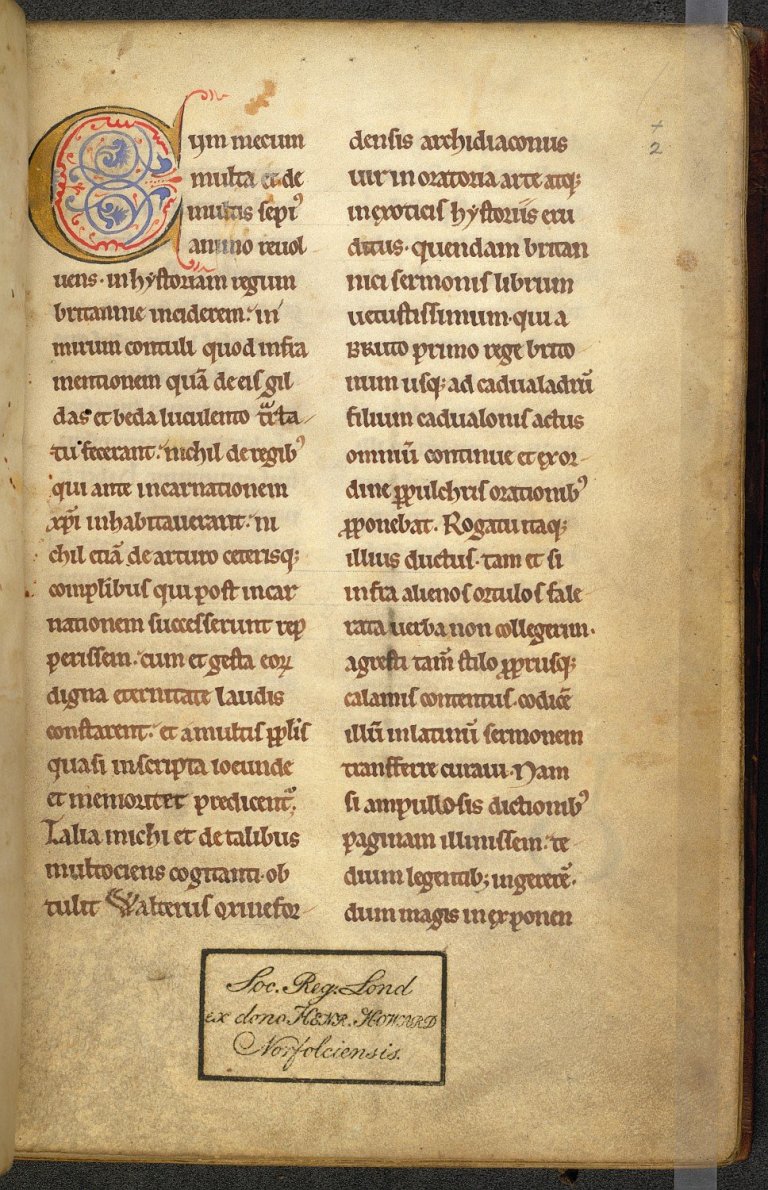 Cum mecum
multa et de
multis sepiꝰ
animo reuol
uens · in hystoriam regum
britannie inciderem: in
mirum contuli quod infra
mentionem quā de eis gil
das et beda luculento tͣcta
tu fecerant: nichil de regibꝰ
qui ante incarnationem
xp̄i inhabitauerant: ni
chil etiā de arturo ceterisq;
complibus qui post incar
nationem successerunt rep
perissem · cum et gesta eoꝝ
digna eternitate laudis
constarent: et a multis ꝓplis
quasi inscripta ioeunde
et memoriter predicentᷣ.
Talia michi et de talibus
multociens cogitanti · ob
tulit Walterus oxinefor
densis archidiaconus
uir in oratoria arte atq;
in exoticis hystoriis eru
ditus · quendam britan
nici sermonis librum
uetustissimum · qui a
BRUTO primo rege brito
num usq; ad cadualadrū
filium cadualonis actus
omniū continue et ex or
dine ꝑpulchris orationibꝰ
ꝓponebat · Rogatu itaq;
illius ductus · tam et si
infra alienos ortulos fale
rata uerba non collegerim ·
agresti tam̄ stilo ꝓprusq;
calamis contentus · codicē
illū in latinū sermonem
transferre curaui · Nam
si ampullosis dictionibꝰ
paginam illinissem: te
dium legentib; ingererē ·
dum magis in exponen
+
2
Soc. Reg: Lond
ex dono HENR. HOWARD
Norfolciensis.